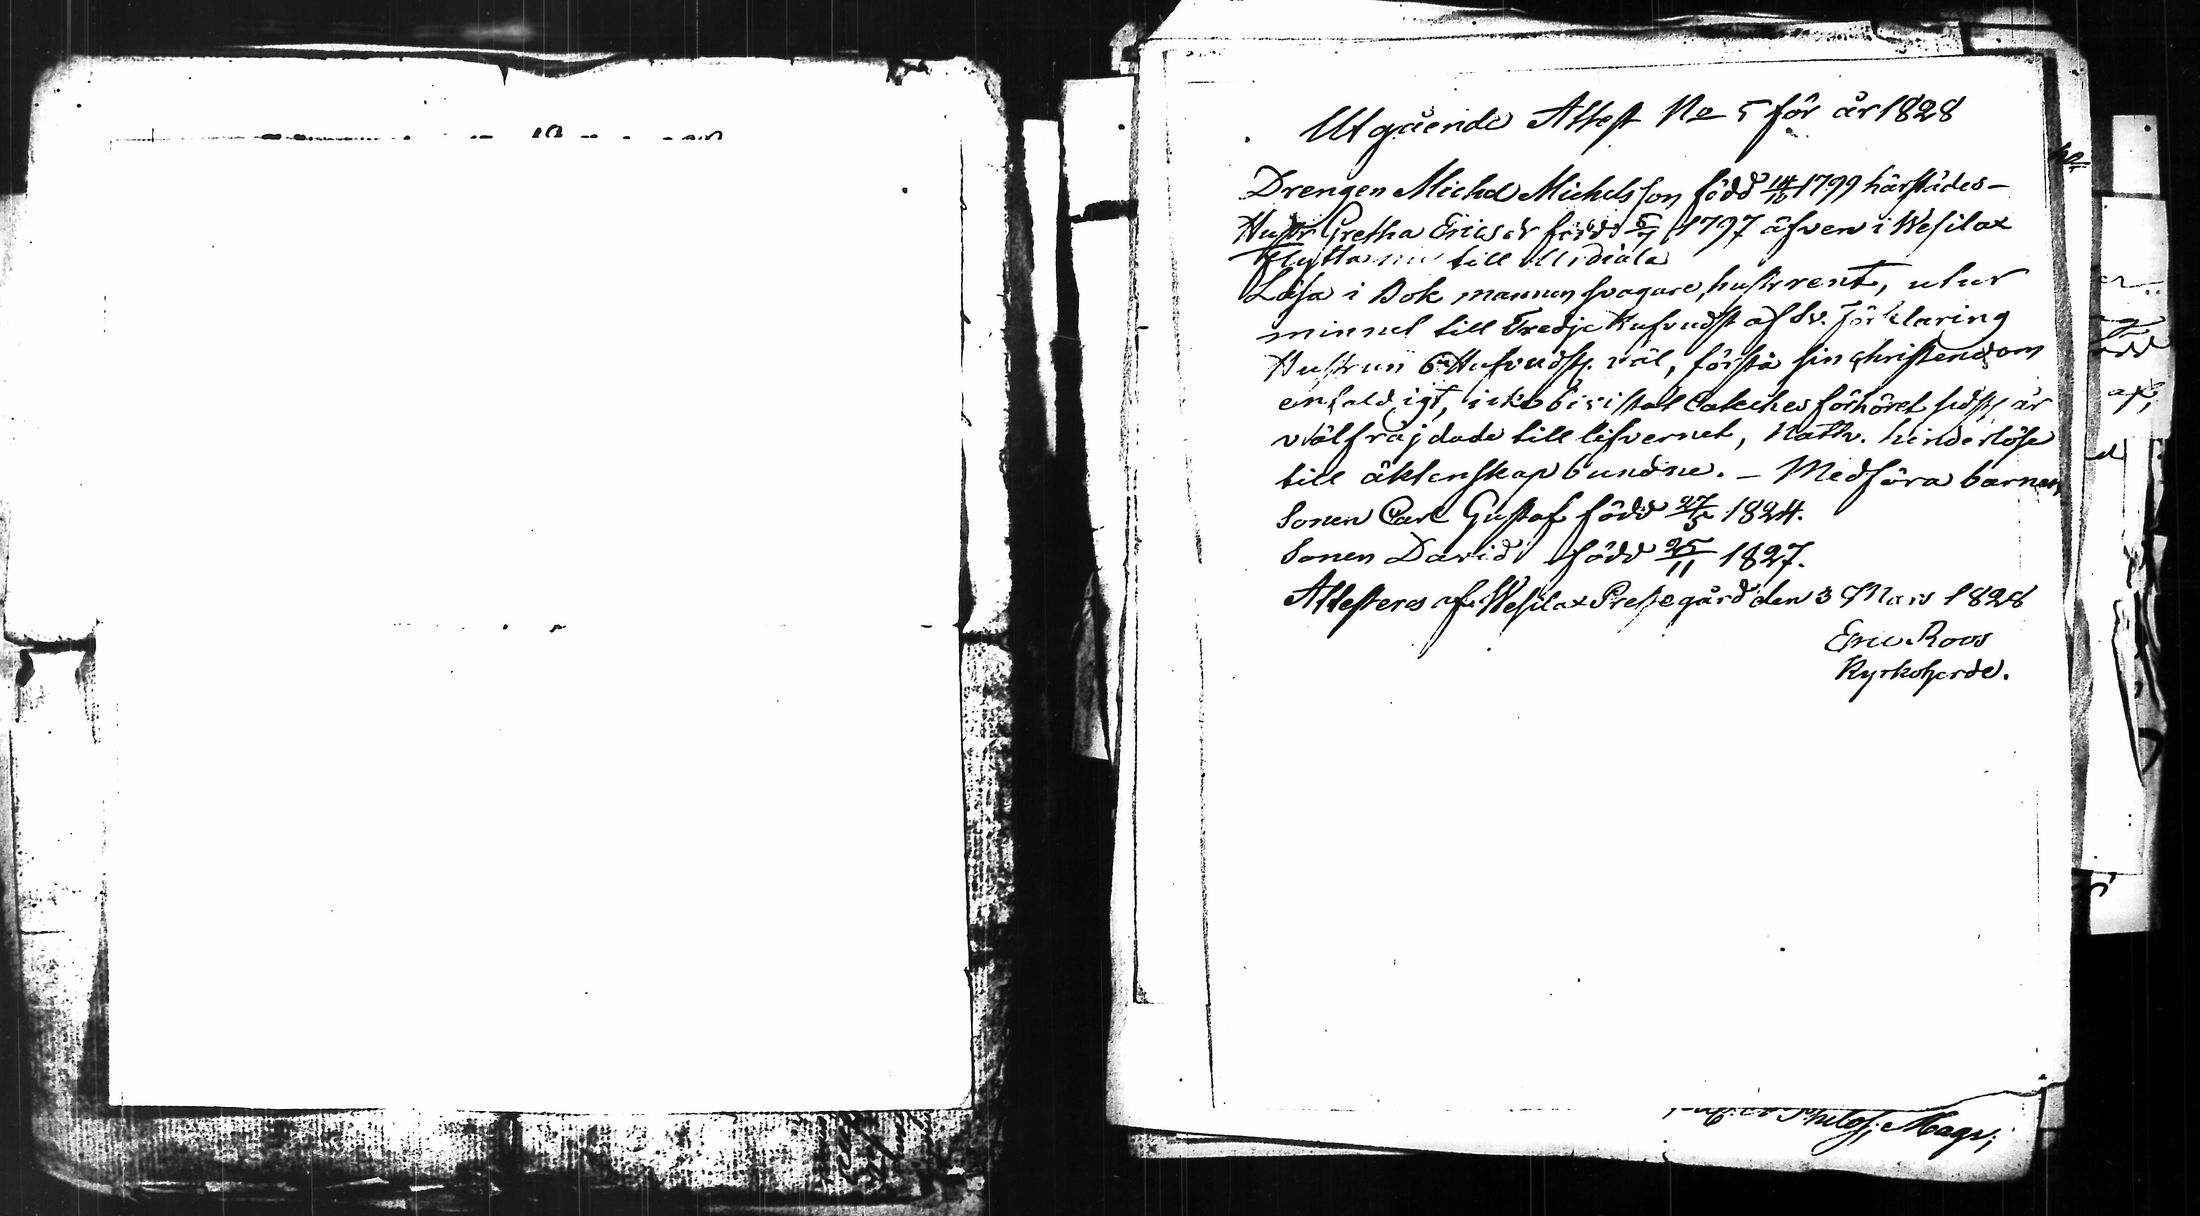 Utgående Attest No 5 för år 1828
Drengen Michel Michelsson född 14/10 1799 härstädes –
Hustr Gretha Ericsdr född 5/7 1797 äfven i Wesilax
Flytta nu till
Läsa i Bok mannen svagare, hustr rent, utur
minnet till Tredje Hufvudst af Sv. Förklaring
Hustrun 6 Hufvudst. väl, förstå sin Christendom
enfaldigt, icke bivistat Catechesförhöret sidst, är
wälfräjdade till lefvernet, Nattv. hinderlöse
till äktenskap bundne. – Medföra barnen
Sonen Carl Gustaf född 27/5 1824.
Sonen David född 25/11 1827.
Attesteres af Wesilax Prestegård den 3 Mars 1828
Eric Roos
Kyrkoherde.
Philos; Magr;